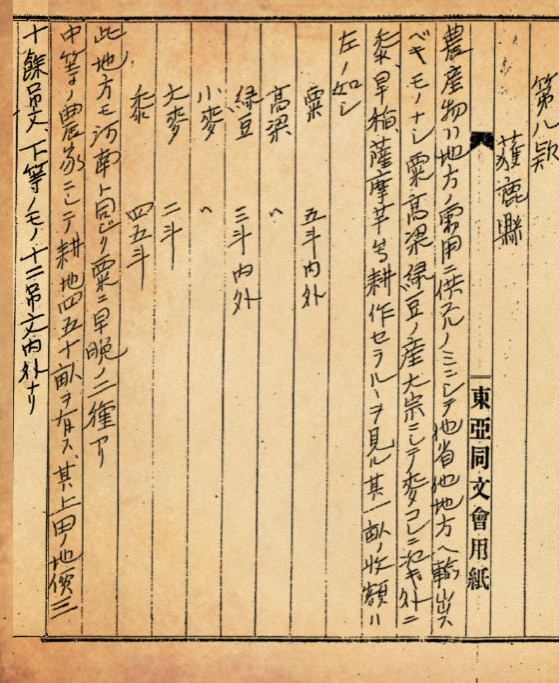 第八欵
獲鹿縣
農産物ハ地方ノ需用ニ供スルノミニシテ他省他地方ヘ輸出ス
ベキモノナシ粟高梁緑豆ノ産大宗ニシテ麥コレニ次キ外ニ
黍、旱稲、薩摩芋等耕作セラルヽヲ見ル其一畝ノ收額ハ
左ノ如シ
粟 五斗内外
高梁 〃
緑豆 三斗内外
小麥 〃
大麥 二斗
黍 四五斗
此地方モ河南ト同ジク粟ニ早晩ノ二種アリ
中等ノ農家ニシテ耕地四五十畝ヲ有ス、其上田ノ地價三
十餘吊文、下等ノモノ十二吊文内外ナリ
東亞同文會用紙